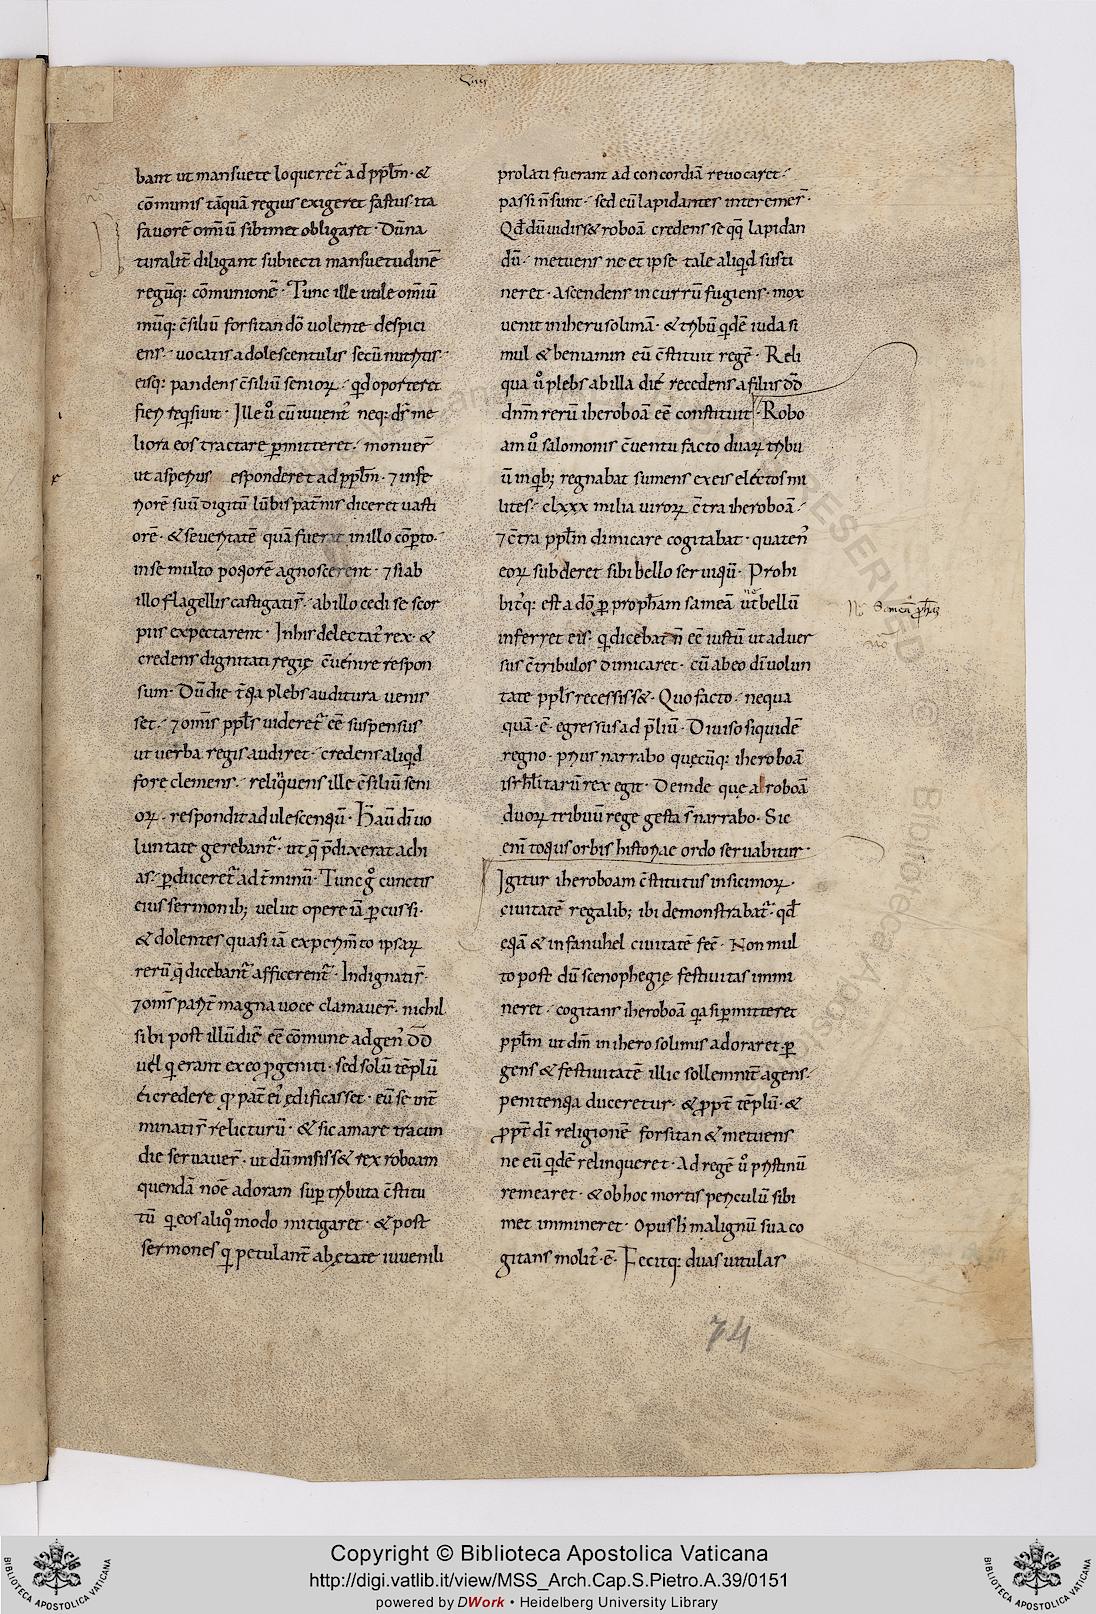 bant ut mansuete loqueret᷑ ad ppl̄m · &
cōmunis tāquā regius exigeret fastus ita
favorē om̄iū sibimet obligaret · Dūna
turalit̄ diligant subiecti mansuetudinē
regūq: cōmunionē · Tunc ille utile om̄iū
mūq: c̄siliū forsitan dō uolente despici
ens · uocatis adolescentulis secū nutritis ·
eisq: pandens c̄siliū seniorꝝ · qd oporteret
fieri reqsiuit · Ille ů cū iuvent᷑ neq: ds̄ me
liora eos tractare ꝑmitteret · monuer̄
ut asperius esponderet ad ppl̄m · ⁊ infe
riorē suū digitū lūbis pat̄nis diceret uasti
orē · & severitatē quā fuerat in illo cōꝑto ·
inse multo potiorē agnoscerent · ⁊ si ab
illo flagellis castigatis̄ · ab illo cedi se scor
piis expectarent · In his delectat᷑ rex · &
credens dignitati regię c̄uenire respon
sum · Dū die t̄tia plebs auditura venis
set · ⁊ omīs ppl̄s videret᷑ eē suspensus
ut verba regis audiret · credens aliqd
fore clemens · relinquens ille c̄siliū seni
orꝝ · respondit adulescentiū · Hāū dī uo
luntate gerebant᷑ · ut q̄ p̄dixerat achi
as · ꝑduceret᷑ ad t̄minū · Tunc g̊ cunctis
eius sermonib; velut opere iā ꝑcussi ·
& dolentes quasi iā experim̄to ipsarꝝ
rerū q̄ dicebant᷑ afficerent᷑ · Indignatis̄ ·
⁊ om̄s parit̄ magna voce clamaver̄ · nichil
sibi post illū diē eē cōmune ad gen᷑ dd̄
uel̄ qi erant ex eo ꝓgeniti · sed solū tēplū
ei credere qđ pat̄ ei᷑ ędificasset · eū se int̄
minatis̄ relicturū · & sic amare iracun
die servaver̄ · ut dū misiss& rex roboam
quendā noē adoram sup̄ tributa c̄stitu
tū qi eos aliq̊ modo mitigaret · & post
sermones qi petulant̄ ab ętate iuvenili
prolati fuerant ad concordiā revocaret ·
passi n̄ sunt · sed eū lapidantes interemer̄ ·
Qd̄ dū vidiss& roboā credens se qq̨ lapidan
dū · metuens ne et ipse tale aliqd susti
neret · ascendens in currū fugiens · mox
uenit in iherusolimā · & tribū qdē iuda si
mul & beniamin eū c̄stituit regē · Reli
qua ů plebs ab illa die recedens a filiis dd̄
dnm̄ rerū iheroboā eē constituit · Robo
am ů salomonis c̄uentu facto duarꝝ tribu
ū in qb; regnabat sumens ex eis electos mi
lites · clxxx milia virorꝝ c̄tra iheroboā ·
⁊ c̄tra ppl̄m dimicare cogitabat · quaten᷑
eorꝝ subderet sibi bello serviciū · Prohi
bitq: est a dō ꝑ propham̄ sameā ut bellū
inferret eis · qi dicebat n̄ eē iustū ut adver
sus c̄tribulos dimicaret · cū ab eo dī volun
tate ppl̄s recessiss& · Quo facto · nequa
quā · ē · egressus ad p̄liū · Diviso siquidē
regno · prius narrabo quęcūq: iheroboā
isrh̄litarū rex egit · Deinde que a roboā
duorꝝ tribuū rege gesta s̄ narrabo · Sic
enī totius orbis historiae ordo servabitur ·
Igitur iheroboam c̄stitutus in sicimorꝝ ·
civitatē regalib; ibi demonstrabat᷑ · qd̄
etiā & in fanuhel civitatē fec̄ · Non mul
to post dū scenophegię festivitas immi
neret · cogitans iheroboā qa si ꝑmitteret
ppl̄m ut dm̄ in iherosolimis adoraret ꝑ
gens & festivitatē illic sollemnit̄ agens ·
penitentia duceretur · & ꝓpt̄ tēplū · &
ꝓpt̄ dī religionē forsitan & metuens
ne eū qdē relinqueret · Ad regē ů pristinū
remearet · & ob hoc mortis periculū sibi
met immineret · Opus h̄ malignū sua co
gitans molit᷑ · ē · Fecitq: duas vitulas
74
Copyright © Biblioteca Apostolica Vaticana
http://digi.vatlib.it/view/MSS_Arch.Cap.S.Pietro.A.39/0151
powered by DWork • Heidelberg University Library